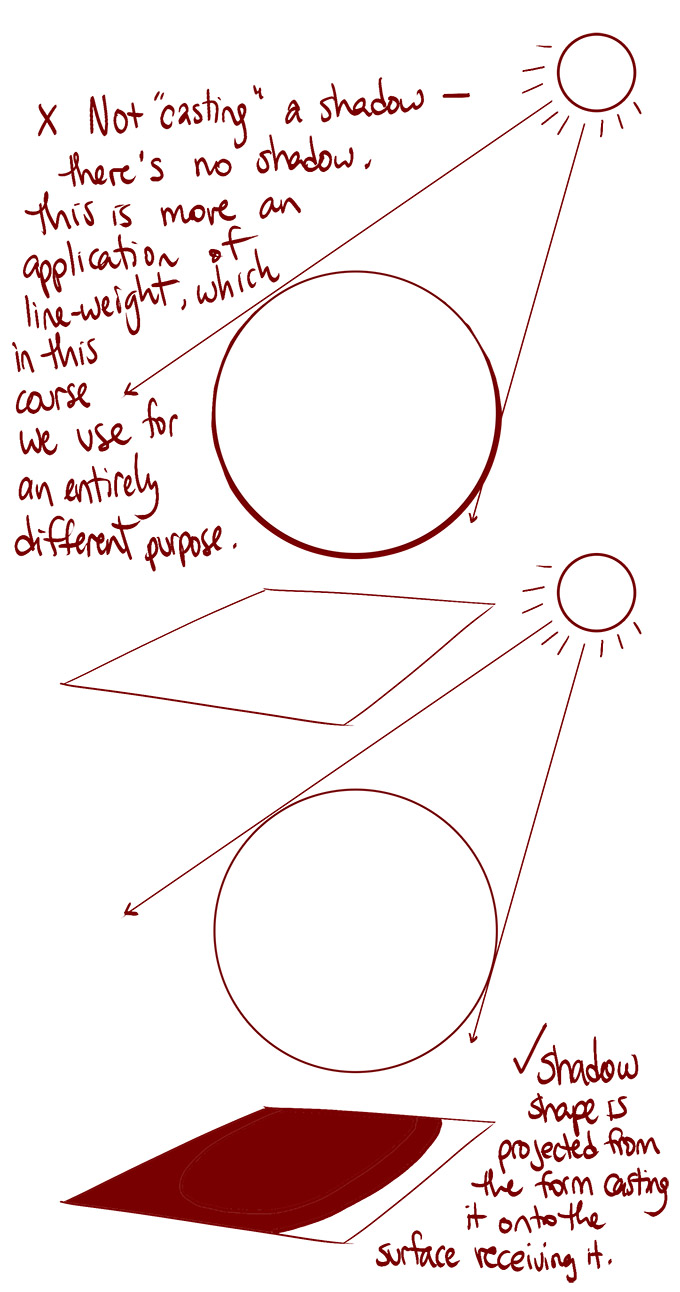 X Not "casting" a shadow —
there's no shadow.
This is more an
application of
line-weight, which
in this
course
we use for
an entirely
different purpose.
✓ Shadow
shape is
projected from
the form casting
it onto the
surface receiving it.